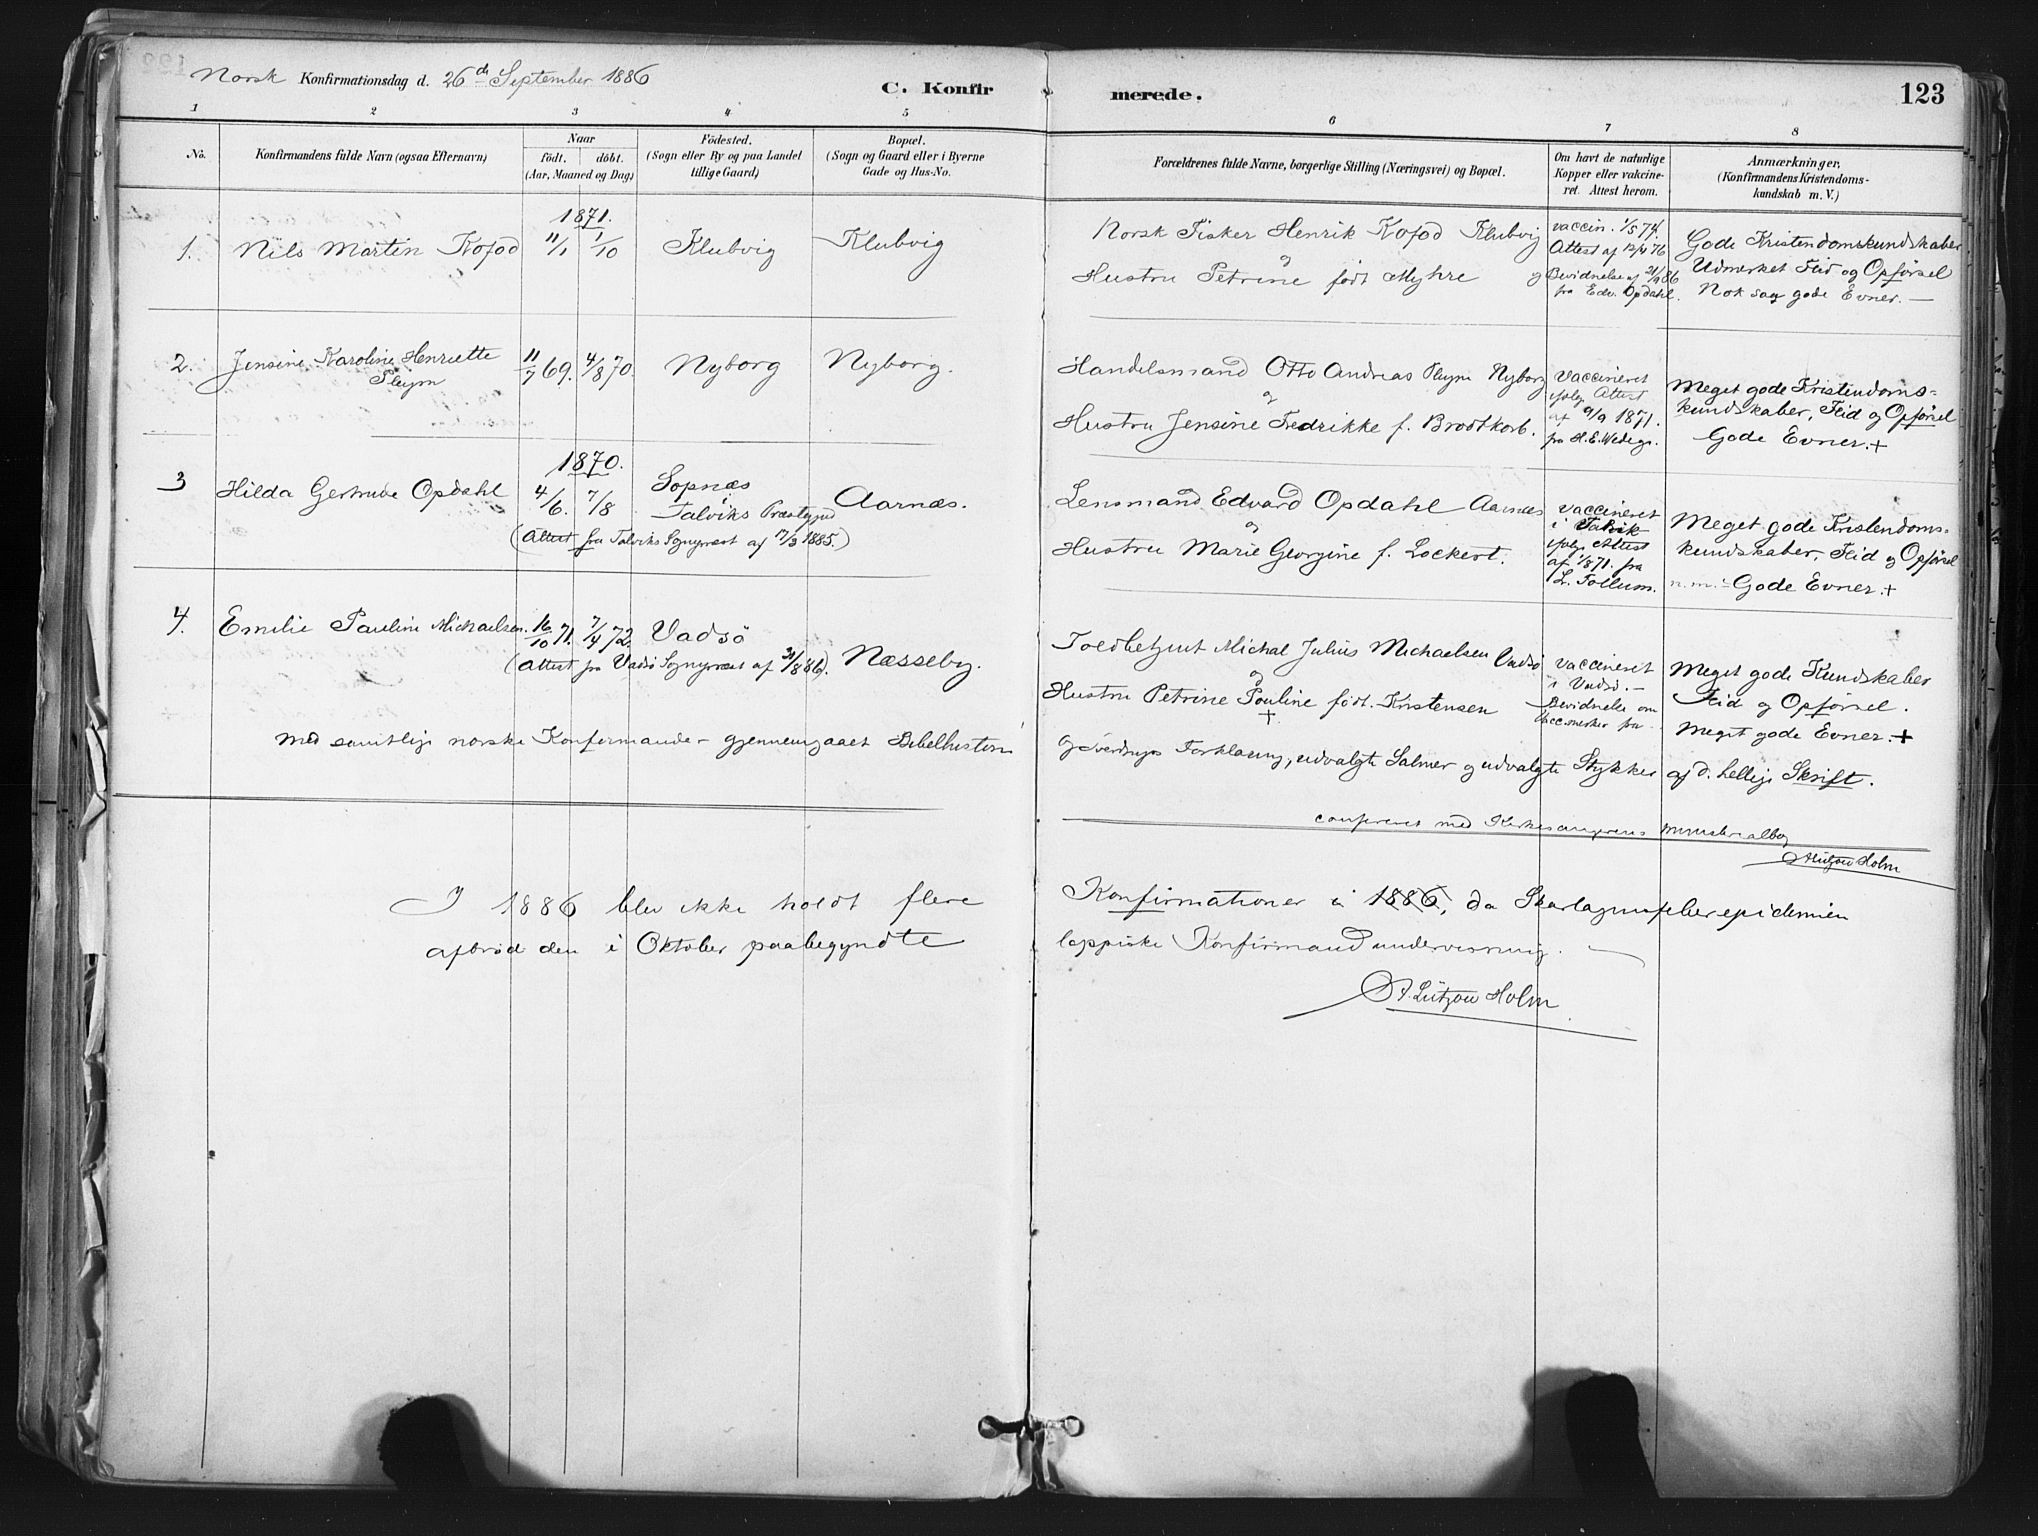 Norsk Konfirmationsdag d. 26de September 1886
C. Konfir
merede.
123
1 2 3 4 5 6 7 8
No.
Konfirmandens fulde Navn (ogsaa Efternavn)
Naar
født. døbt.
(Aar, Maaned og Dag)
Fødested.
(Sogn eller By og paa Landet
tillige Gaard)
Bopæl.
(Sogn og Gaard eller i Byerne
Gade og Hus-No.
Forældrenes fulde Navne, borgerlige Stilling (Næringsvei) og Bopæl.
Om havt de naturlige
Kopper eller vakcine-
ret. Attest herom.
Anmærkninger.
(Konfirmandens Kristendoms-
kundskab m. V.)
1871.
1. Nils Martin Kofod 11/1 1/10 Klubvig Klubvig
Norsk Fisker Henrik Kofod Klubvig
og
Hustru Petrine født Myhre
vaccin. 1/5 74.
Attest af 12/4 76
og Bevidnelse af 21/9 86
fra Edv. Opdahl.
Gode Kristendomskundskaber
Udmerket Flid og Opførsel
Nok saa gode Evner. —
2. Jensine Karoline Henriette
Pleym
11/7 69. 4/8 70. Nyborg Nyborg.
Handelsmand Otto Andreas Pleym Nyborg
og
Hustru Jensine Fredrikke f. Brodtkorb.
Vaccineret
ifølge Attest
af 9/9 1871.
fra H. E. Wedege.
Meget gode Kristendoms-
kundskaber, Flid og Opførsel
Gode Evner. +
1870.
3 Hilda Gertrude Opdahl 4/6. 7/8 Sopnæs
Talviks Præstegjeld
Aarnæs.
(Attest fra Talviks Sogneprest af 17/3 1885.)
Lensmand Edvard Opdahl Aarnæs
og
Hustru Marie Georgine f. Lockert.
Vaccineret
i Talvik
ifølge Attest
af 1/8 71. fra
L. Tollum.
Meget gode Kristendoms-
kundskaber, Flid og Opførsel
n. m. : Gode Evner. +
4. Emilie Pauline Michaelsen. 16/10 71. 7/4 72. Vadsø
(Attest fra Vadsø Sogneprest af 31/8 86). Næsseby.
Toldbetjent Michal Julius Michaelsen Vadsø
og
Hustru Petrine Pouline født Kristensen
+
Vaccineret
i Vadsø. —
Bevidnelse om
Meget gode Kundskaber
Flid og Opførsel.
Meget gode Evner. +
Med samtlige norske Konfirmander gjennemgaaet Bibelhistorie
og Sverdrups Forklaring, udvalgte Salmer og udvalgte Stykker af d. hellige Skrift.
confereret med Kirkesangerens ministerialbog
A. Lützow Holm
I 1886 blev ikke holdt flere
Konfirmationer i 1886, da Skarlagensfeberepidemien
afbrød den i Oktober paabegyndte
lappiske Konfirmandundervisning. —
A. Lützow Holm